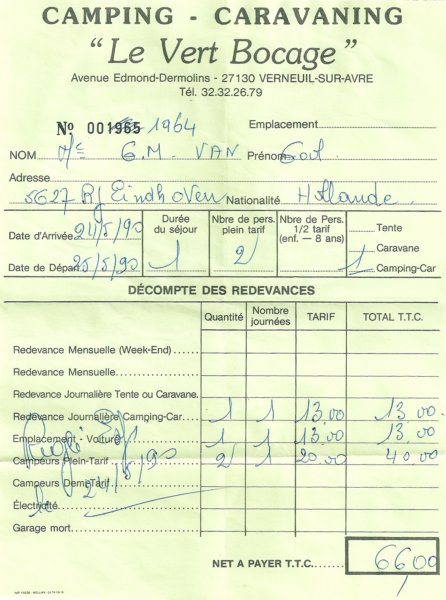 CAMPING - CARAVANING
"Le Vert Bocage"
Avenue Edmond-Dermolins - 27130 VERNEUIL-SUR-AVRE
Tél. 32.32.26.79
No 001965 1964 Emplacement
NOM G.M. VAN Prénom
Adresse
5627 RJ Eindhoven Nationalité Hollande
Date d'Arrivée 24/5/90 Durée du séjour 1 Nbre de pers. plein tarif 2 Nbre de Pers. 1/2 tarif (enf. — 8 ans) Tente
Caravane
Date de Départ 25/5/90 1 Camping-Car
DÉCOMPTE DES REDEVANCES
Quantité Nombre journées TARIF TOTAL T.T.C.
Redevance Mensuelle (Week-End)
Redevance Mensuelle
Redevance Journalière Tente ou Caravane
Redevance Journalière Camping-Car 1 1 13.00 13.00
Emplacement - Voiture 1 1 13.00 13.00
Campeurs Plein-Tarif 2 1 20.00 40.00
Campeurs Demi-Tarif
le 24/5/90
Électricité
Garage mort
NET A PAYER T.T.C. 66,00